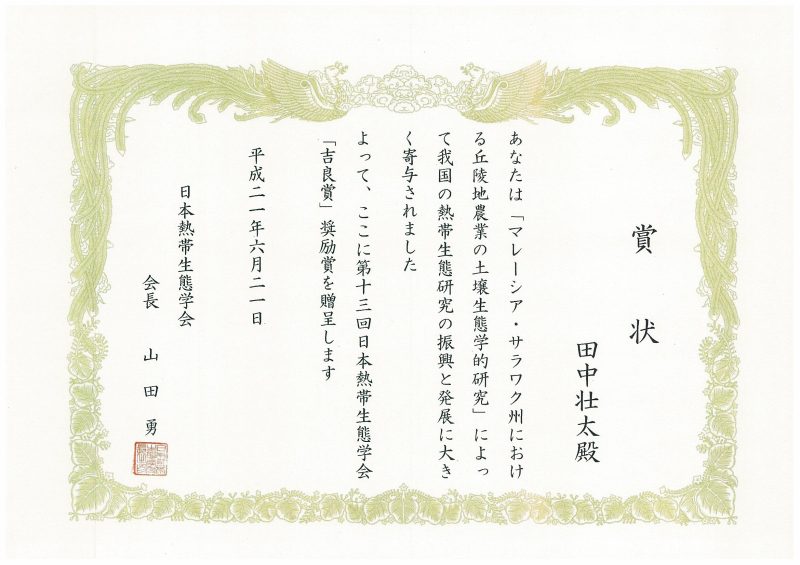 賞状
田中壮太殿
あなたは「マレーシア・サラワク州におけ
る丘陵地農業の土壌生態学的研究」によっ
て我国の熱帯生態研究の振興と発展に大き
く寄与されました
よって、ここに第十三回日本熱帯生態学会
「吉良賞」奨励賞を贈呈します
平成二一年六月二一日
日本熱帯生態学会
会長 山田勇